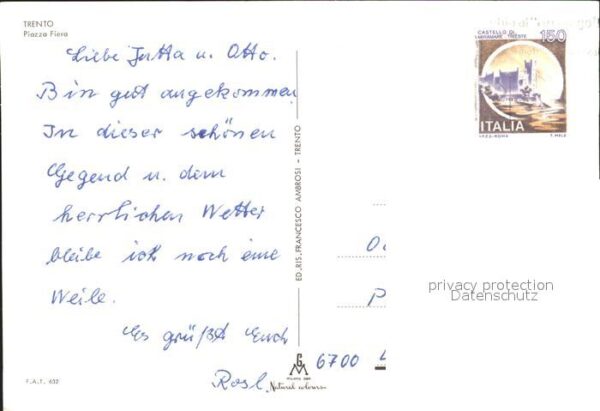 TRENTO
Piazza Fiera
Liebe Jutta u. Otto.
Bin gut angekommen
In dieser schönen
Gegend u. dem
herrlichen Wetter
bleibe ich noch eine
Weile.
Es grüßt Euch
Rosl.
F.A.T. 402
ED. RIS. FRANCESCO AMBROSI - TRENTO
Natural colours
CASTELLO DI
MIRAMARE TRIESTE
150
ITALIA
I.P.Z.S. - ROMA
T. MELE
privacy protection
Datenschutz
6700